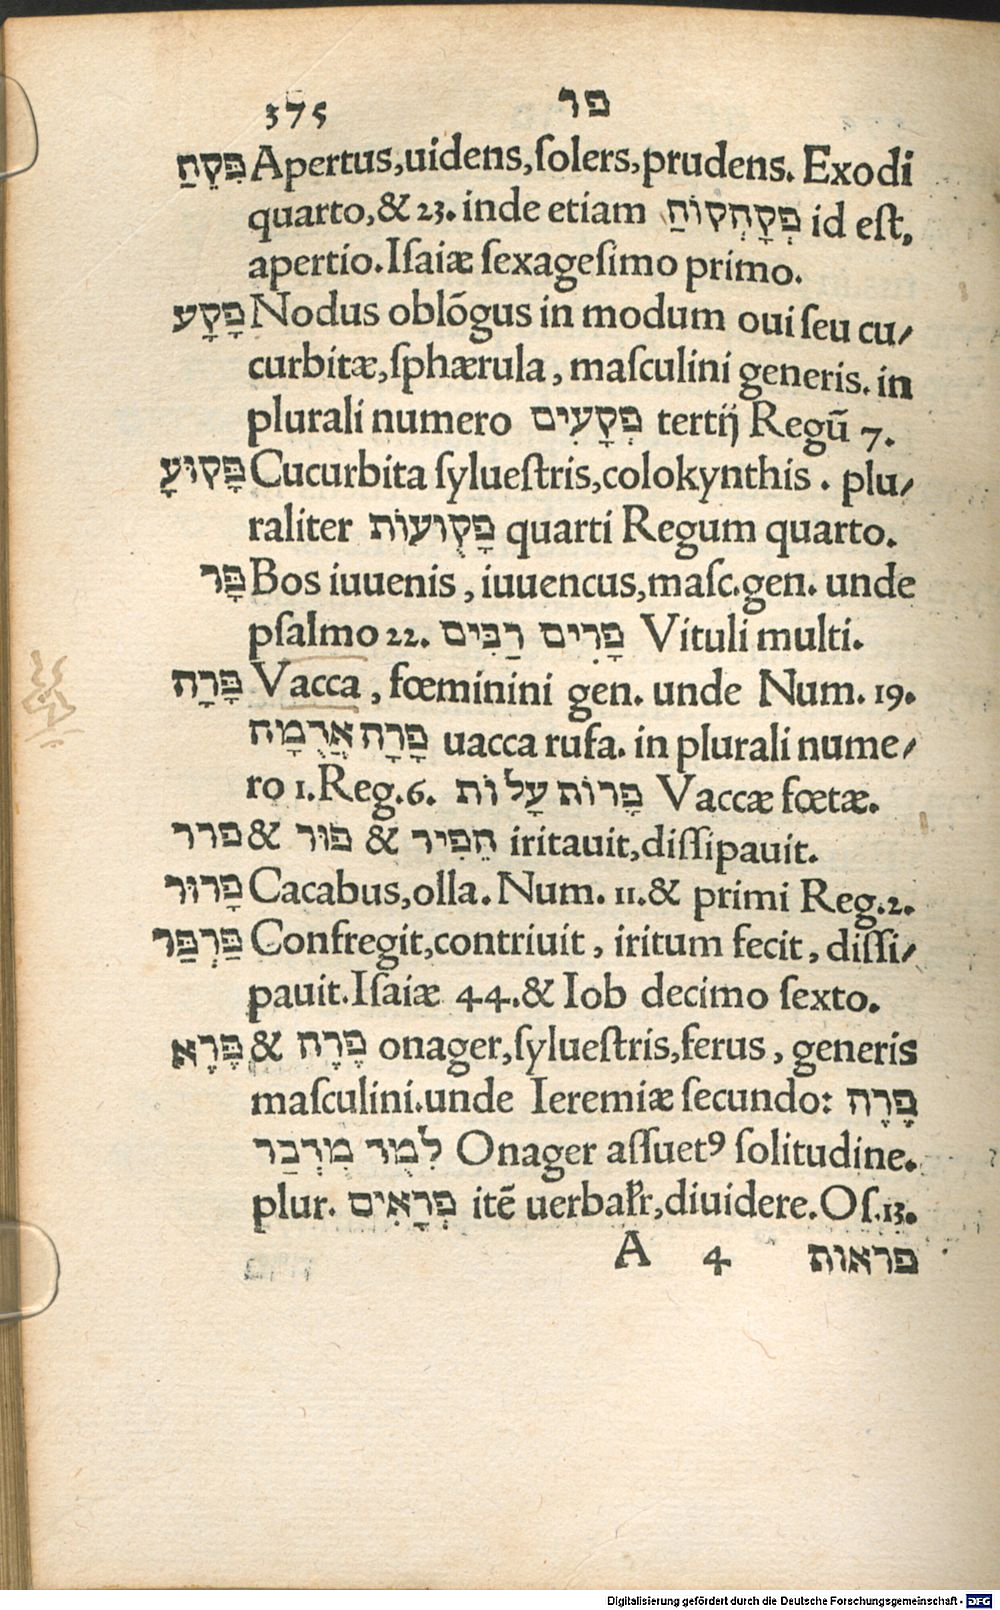 375 פר
פִּקֵחַ Apertus,uidens,ſolers,prudens. Exodi
quarto,& 23. inde etiam פְּקָחְקוֹחַ id eſt,
apertio.Iſaiæ ſexageſimo primo.
פָּקָע Nodus oblõgus in modum oui ſeu cu⸗
curbitæ,ſphærula, maſculini generis. in
plurali numero פְּקָעִים tertij Regũ 7.
פָּקוּעָ Cucurbita ſylueſtris,colokynthis. plu⸗
raliter פָּקֻועוֹת quarti Regum quarto.
פָּר Bos iuuenis, iuuencus,maſc.gen. unde
pſalmo 22. פָּרִים רַבִּים Vituli multi.
פָּרָה Vacca, fœminini gen. unde Num. 19.
פָּרָה אֲרֻמָּה uacca rufa. in plurali nume⸗
ro 1.Reg.6. פָּרוֹת עָלוֹת Vaccæ fœtæ.
פרר & פוּר & הֵפִיר iritauit,diſſipauit.
פָּרוּר Cacabus,olla. Num. 11.& primi Reg.2.
פַּרְפַּר Confregit,contriuit, iritum fecit, diſſi⸗
pauit.Iſaiæ 44.& Iob decimo ſexto.
פֶּרֶא & פֶּרֶה onager,ſylueſtris,ferus, generis
maſculini.unde Ieremiæ ſecundo: פֶּרֶה
לִמֻּד מִדְבַּר Onager aſſuetꝰ ſolitudine.
plur. פְּרָאִים itẽ uerbalr̃,diuidere.Oſ.13.
A 4 פראות
Digitalisierung gefördert durch die Deutsche Forschungsgemeinschaft - DFG